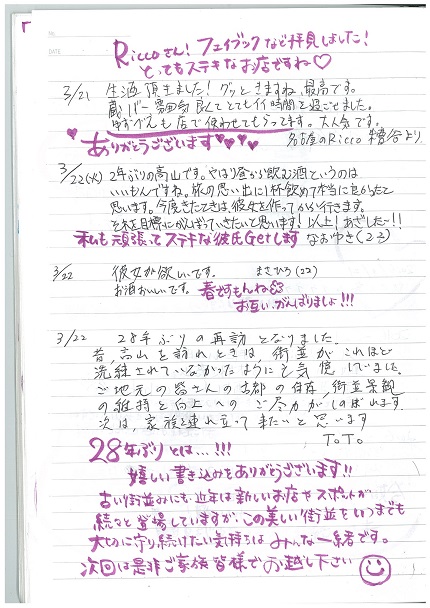 Riccoさん! フェイブックなど拝見しました!
とってもステキなお店ですね♡
3/21 生酒頂きました! グッときますね、最高です。
蔵バー雰囲気良くてとてもイイ時間を過ごせました。
ゆずぺぇも店で使わせてもらってます。大人気です。
ありがとうございます♥♥♥ 名古屋のRicco 糟谷より
3/22(火) 2年ぶりの高山です。やはり昼から飲む酒というのは
いいもんですね。旅の思い出に1杯飲めて本当に良かったと
思います。今度きたときは、彼女を作ってから行きます。
それを目標にがんばっていきたいと思います! 以上! あざした〜!!
私も頑張ってステキな彼氏Getします なおゆき(23)
3/22 彼女が欲しいです。 まさひろ(22)
お酒おいしいです。 春ですもんね
お互い、がんばりましょ!!!
3/22 28年ぶりの再訪となりました。
昔、高山を訪れたときは、街並がこれほど
洗練されていなかったように記憶していました。
ご地元の皆さんの古都の保存、街並景観
の維持と向上へのご尽力がしのばれます。
次は、家族を連れ立って来たいと思います
T.T.
28年ぶりとは...!!!
嬉しい書き込みをありがとうございます!!
古い街並みにも、近年は新しいお店やスポットが
続々と登場していますが、この美しい街並をいつまでも
大切に守り続けたい気持ちはみんな一緒です。
次回は是非ご家族皆様でお越し下さい